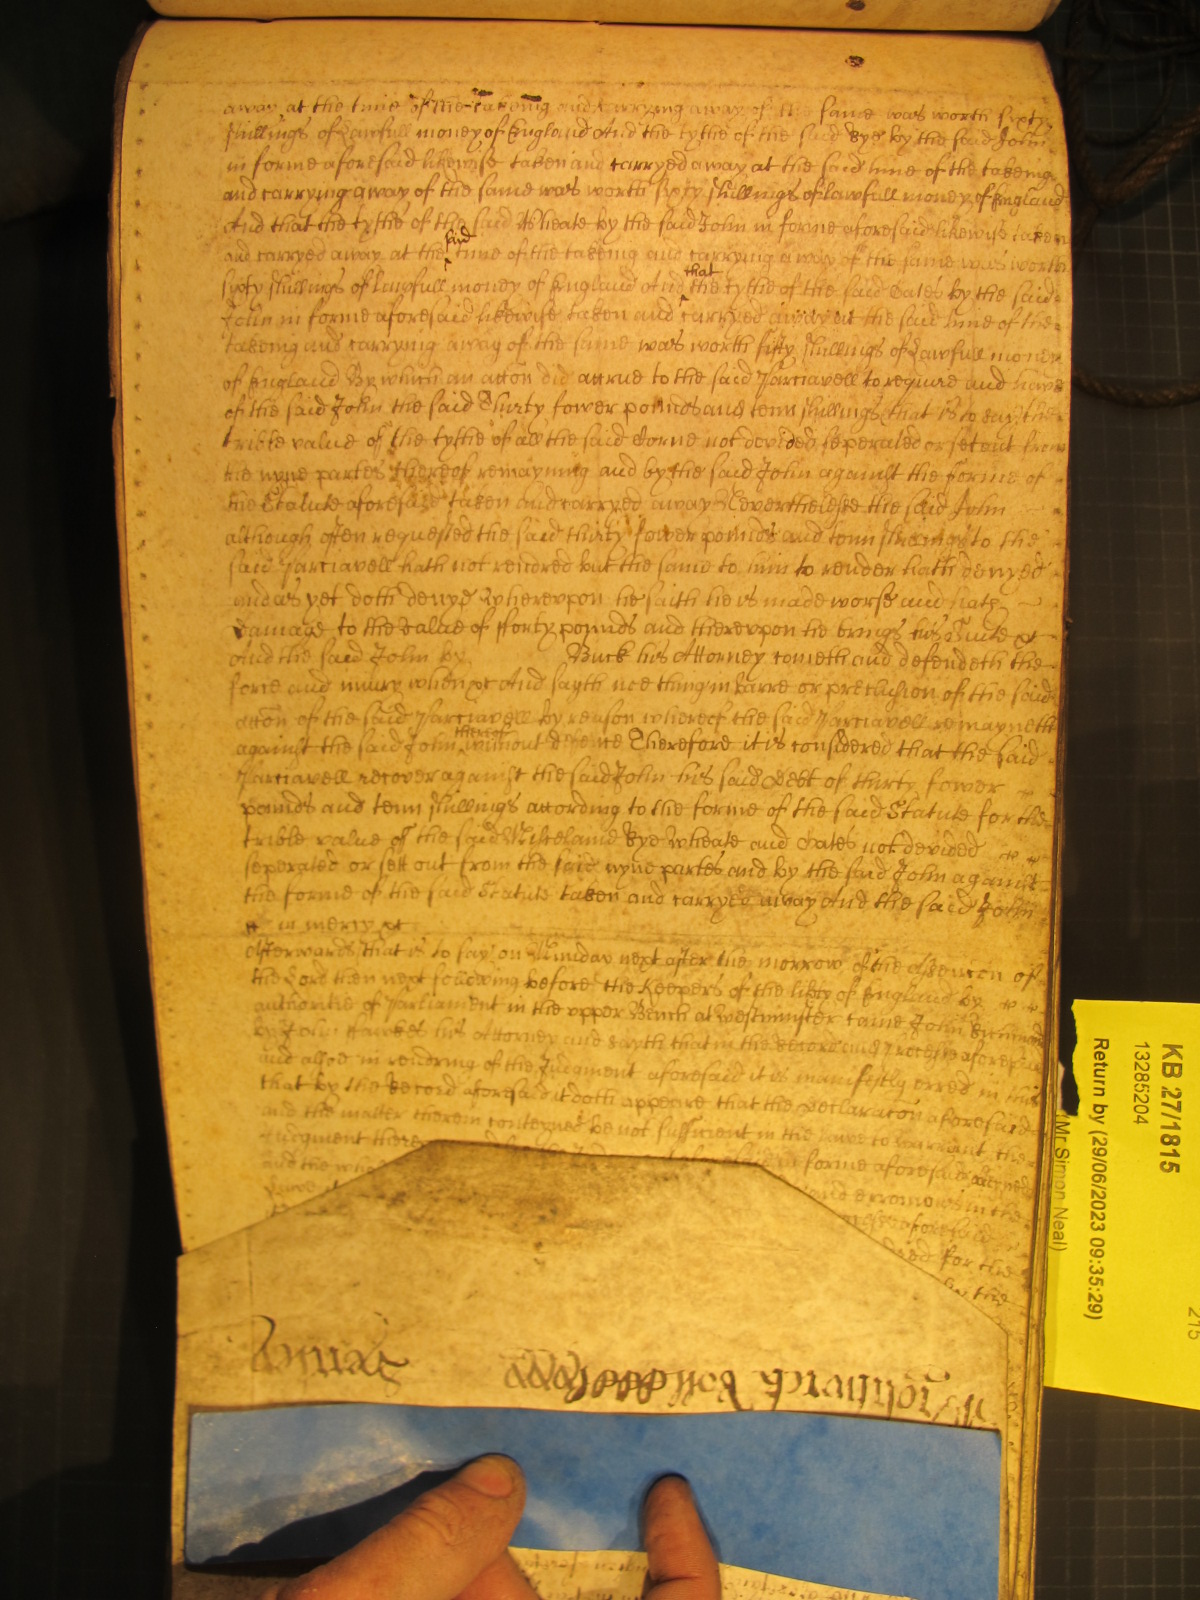 away at the time of the takeing and carrying away of the same was worth sixty
shillings of lawfull money of England And the tythe of the said Rye by the said John
in forme aforesaid likewise taken and carryed away at the said time of the takeing
and carrying away of the same was worth sixty shillings of lawfull money of England
And that the tythe of the said Wheate by the said John in forme aforesaid likewise taken
and carryed away at the said time of the takeing and carrying away of the same was worth
sixty shillings of lawfull money of England And that the tythe of the said Oates by the said
John in forme aforesaid likewise taken and carryed away at the said time of the
takeing and carrying away of the same was worth fifty shillings of lawfull money
of England By which an accon did accrue to the said Parciavell to require and have
of the said John the said Thirty fower pounds and tenn shillings that is to say the
trible value of the tythe of all the said Corne not devided seperated or set out from
the nyne partes thereof remayning and by the said John against the forme of
the Statute aforesaid taken and carryed away Neverthelesse the said John
although often requested the said thirty fower pounds and tenn shillings to the
said Parciavell hath not restored but the same to him to render hath denyed
and as yet doth denye Wherevpon he saith he is made worse and hath
damage to the value of fforty pounds and therevpon he brings his Suite &c
And the said John by Buck his Attorney cometh and defendeth the
force and iniury when &c And sayth noe thing in barre or preclusion of the said
accon of the said Parciavell by reason whereof the said Parciavell remayneth
against the said John thereof without defence Therefore it is considered that the said
Parciavell recover against the said John his said debt of thirty fower
pounds and tenn shillings according to the forme of the said Statute for the
trible value of the said Misceland Rye Wheate and Oates not devided
seperated or sett out from the said nyne partes and by the said John against
the forme of the said Statute taken and carryed away And the said John
in mercy &c
Afterwards that is to say on Munday next after the morrow of the Assencon of
the Lord then next following before the Keepers of the libty of England by
authoritie of Parliament in the vpper Bench at Westminster came John
by John his Attorney and sayth that in the Record and Processe aforesaid
and alsoe in rendring of the Judgment aforesaid it is manifestly erred in this
that by the Record aforesaid it doth appeare that the declaracon aforesaid
and the matter therein conteyned be not sufficient in the lawe to warrant the
Judgment in forme aforesaid
and the and erronious in the
aforesaid
for the
by the
KB 27/1815
13285204
Return by (29/06/2023 09:35:29)
(Mr Simon Neal)
215